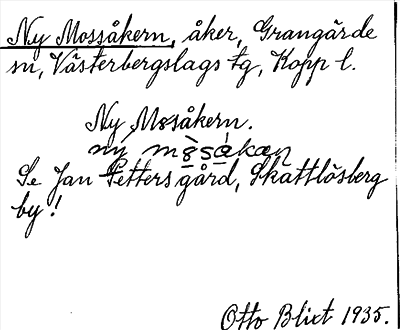 Ny Mossåkern, åker, Grangärde
sn, Västerbergslags tg, Kopp l.
Ny Mosåkern.
ny
Se Jan Petters gård, Skattlösberg
by!
Otto Blixt 1935.